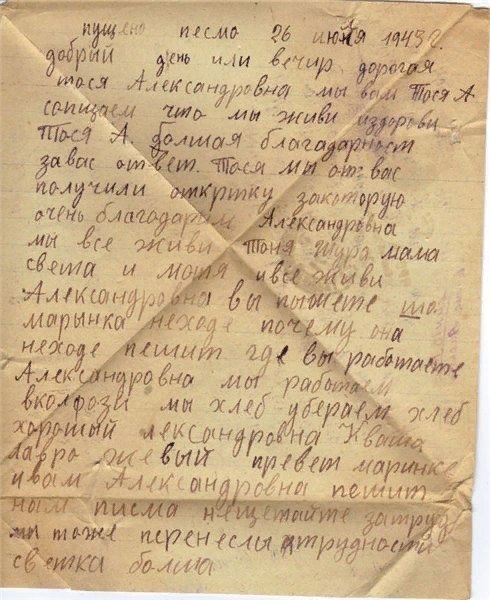 пущено песмо 26 июля 1943 г.
добрый день или вечир дорогая
тося Александровна мы вам Тося А
сопщаем что мы живи издорови
Тося А. болшая благодарност
за вас ответ. Тося мы от вас
получили откртку закоторую
очень благодарим Александровна
мы все живи Тоня Шура мама
света и мотя и все живи
Александровна вы пышете що
марынка неходе почему она
неходе пешит где вы работаете
Александровна мы работаем
вколгози мы хлеб убераем хлеб
хороший лександровна Кваша
лавро жевый превет маринке
ивам Александровна пешит
нам писма нещетайте затруд
мы тоже перенеслы трудности
светка болша